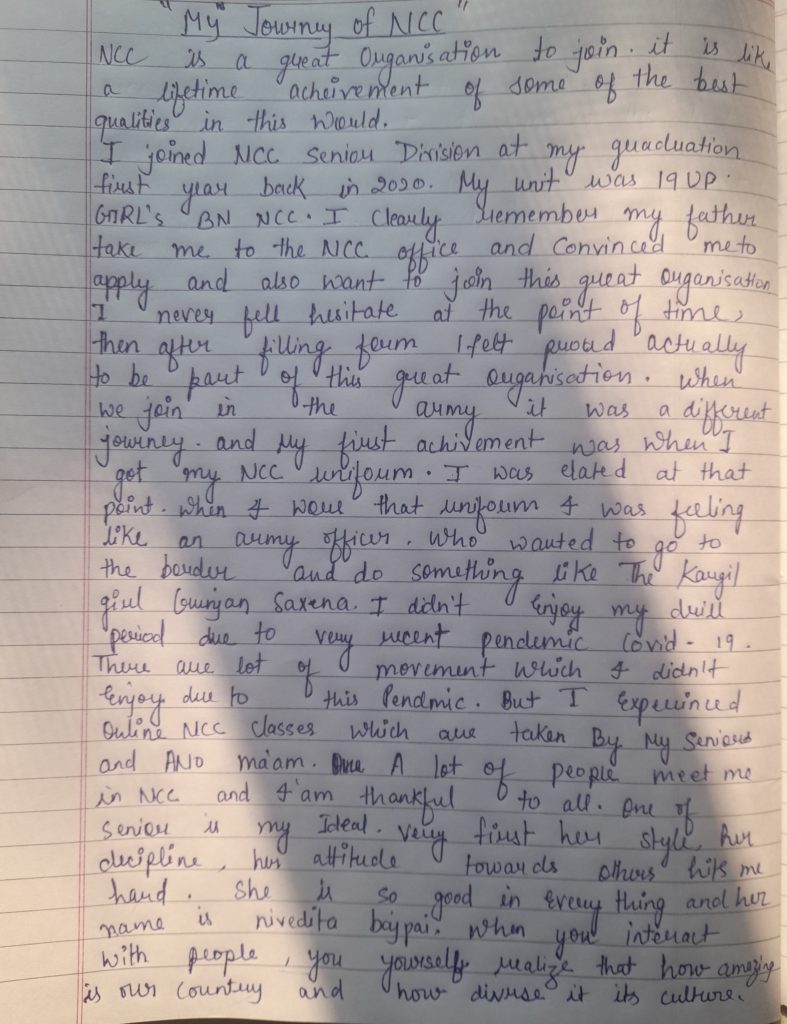 "My Journey of NCC"
NCC is a great Organisation to join. it is like
a lifetime acheivement of some of the best
qualities in this World.
I joined NCC Senior Division at my graduation
first year back in 2020. My unit was 19 UP.
GIRL's BN NCC. I Clearly remember my father
take me to the NCC office and Convinced me to
apply and also want to join this great organisation
I never fell hesitate at the point of time,
then after filling form I felt proud actually
to be part of this great organisation. When
we join in the army it was a different
journey. and My first achivement was when I
got my NCC uniform. I was elated at that
point. When I wore that uniform I was feeling
like an army officer. Who wanted to go to
the border and do something like The Kargil
girl Gunjan Saxena. I didn't Enjoy my drill
period due to very recent pendemic Covid-19.
There are lot of movement which I didn't
Enjoy due to this Pendmic. But I Experinced
Online NCC Classes which are taken By My Seniors
and ANO ma'am. A lot of people meet me
in NCC and I'am thankful to all. One of
senior is my Ideal. very first her style, her
decipline, her attitude towards others hits me
hard. She is so good in Every thing and her
name is nivedita bajpai. When you interact
with people, you yourself realize that how amazing
is our Country and how diverse it its culture.